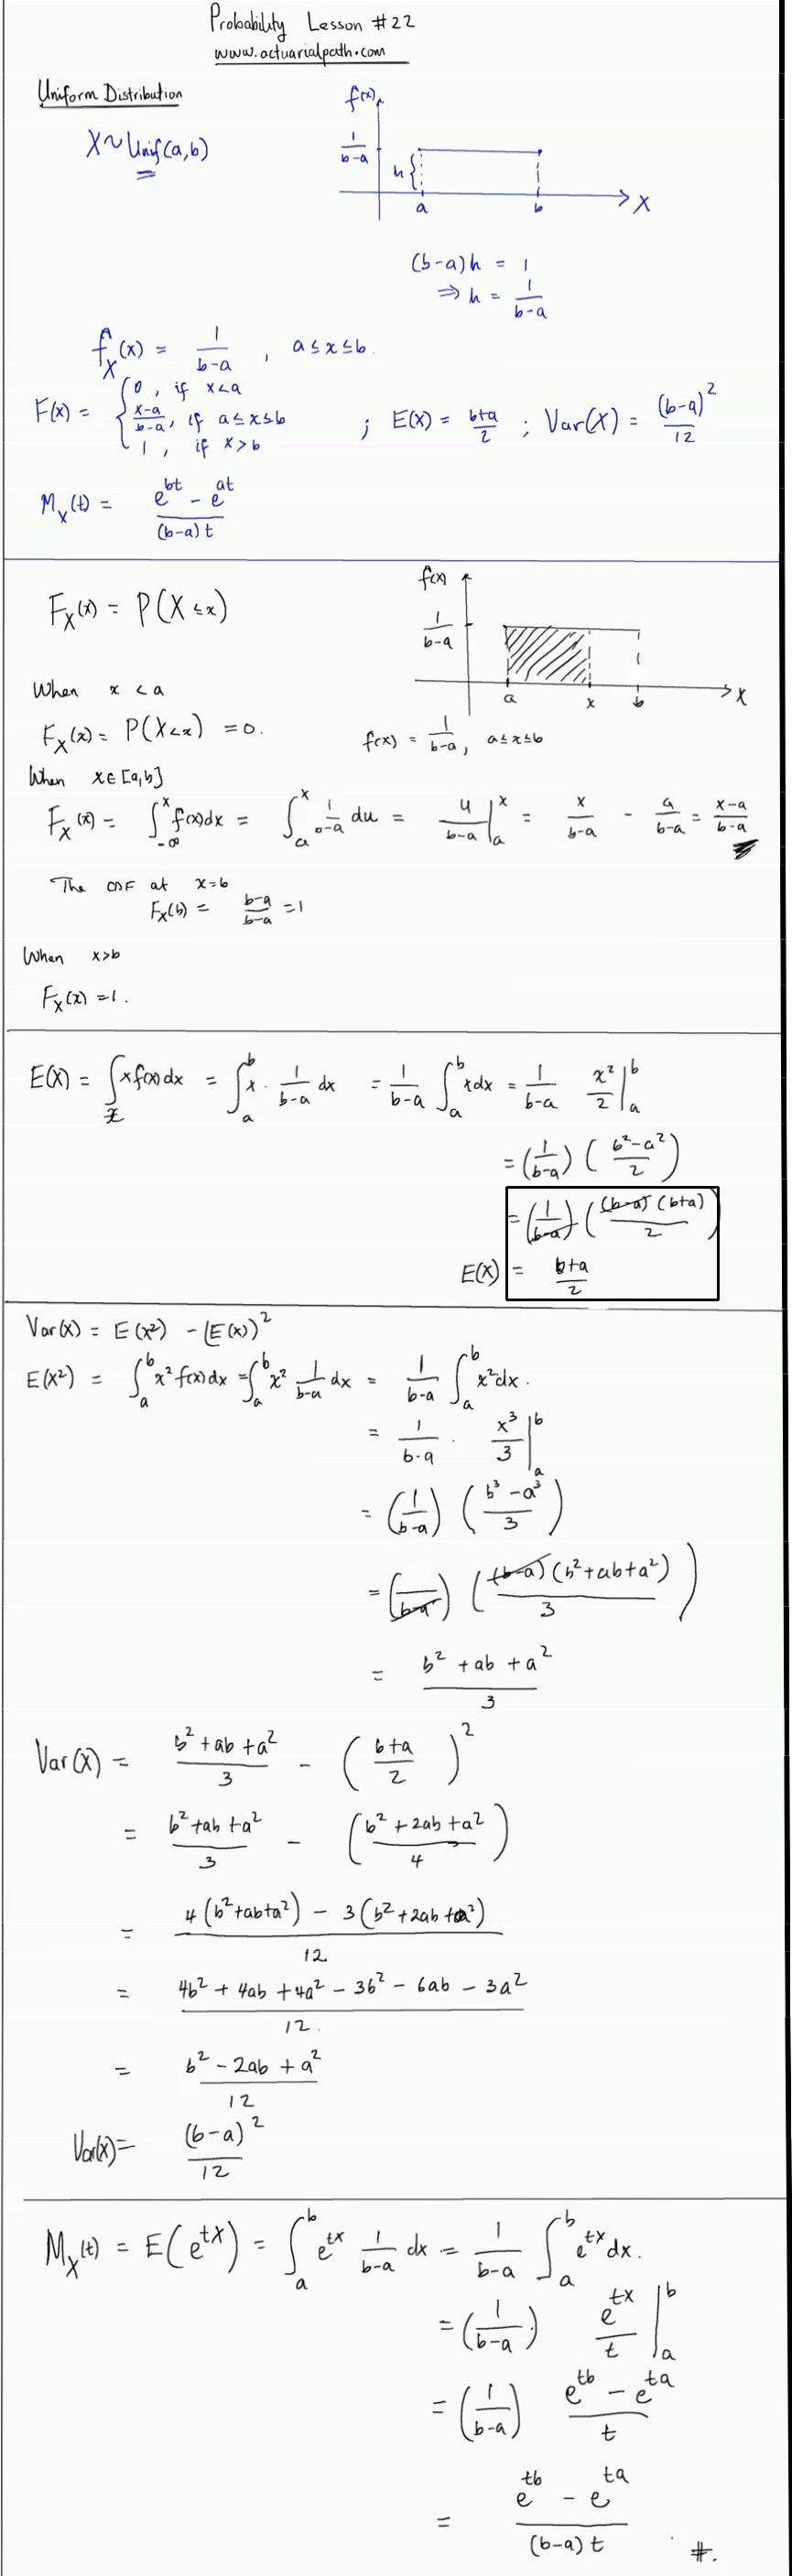 Probability Lesson #22
www.actuarialpath.com
Uniform Distribution
X~Unif(a,b)
f(x)
1/(b-a)
h{
a b X
(b-a)h = 1
⇒ h = 1/(b-a)
f_X(x) = 1/(b-a) , a ≤ x ≤ b.
F(x) = { 0 , if x<a
(x-a)/(b-a), if a ≤ x ≤ b
1 , if x>b
; E(X) = (b+a)/2 ; Var(X) = (b-a)²/12
M_X(t) = (e^{bt} - e^{at})/((b-a)t)
F_X(x) = P(X ≤ x)
f(x)
1/(b-a)
a x b X
f(x) = 1/(b-a), a ≤ x ≤ b
When x < a
F_X(x) = P(X<x) = 0.
When x∈[a,b]
F_X(x) = ∫_{-∞}^{x} f(x)dx = ∫_a^x 1/(b-a) du = u/(b-a) |_a^x = x/(b-a) - a/(b-a) = (x-a)/(b-a)
The CDF at x=b
F_X(b) = (b-a)/(b-a) = 1
When x>b
F_X(x) = 1.
E(X) = ∫_x x f(x) dx = ∫_a^b x · 1/(b-a) dx = 1/(b-a) ∫_a^b x dx = 1/(b-a) x²/2 |_a^b
= (1/(b-a)) ((b²-a²)/2)
= (1/(b-a)) ((b-a)(b+a)/2)
E(X) = (b+a)/2
Var(X) = E(X²) - (E(X))²
E(X²) = ∫_a^b x² f(x) dx = ∫_a^b x² 1/(b-a) dx = 1/(b-a) ∫_a^b x² dx.
= 1/(b-a) · x³/3 |_a^b
= (1/(b-a)) ((b³-a³)/3)
= (1/(b-a)) ((b-a)(b²+ab+a²)/3)
= (b²+ab+a²)/3
Var(X) = (b²+ab+a²)/3 - ((b+a)/2)²
= (b²+ab+a²)/3 - ((b²+2ab+a²)/4)
= (4(b²+ab+a²) - 3(b²+2ab+a²))/12
= (4b²+4ab+4a²-3b²-6ab-3a²)/12.
= (b²-2ab+a²)/12
Var(X) = (b-a)²/12
M_X(t) = E(e^{tX}) = ∫_a^b e^{tx} 1/(b-a) dx = 1/(b-a) ∫_a^b e^{tx} dx.
= (1/(b-a)) e^{tx}/t |_a^b
= (1/(b-a)) (e^{tb} - e^{ta})/t
= (e^{tb} - e^{ta})/((b-a)t) #.